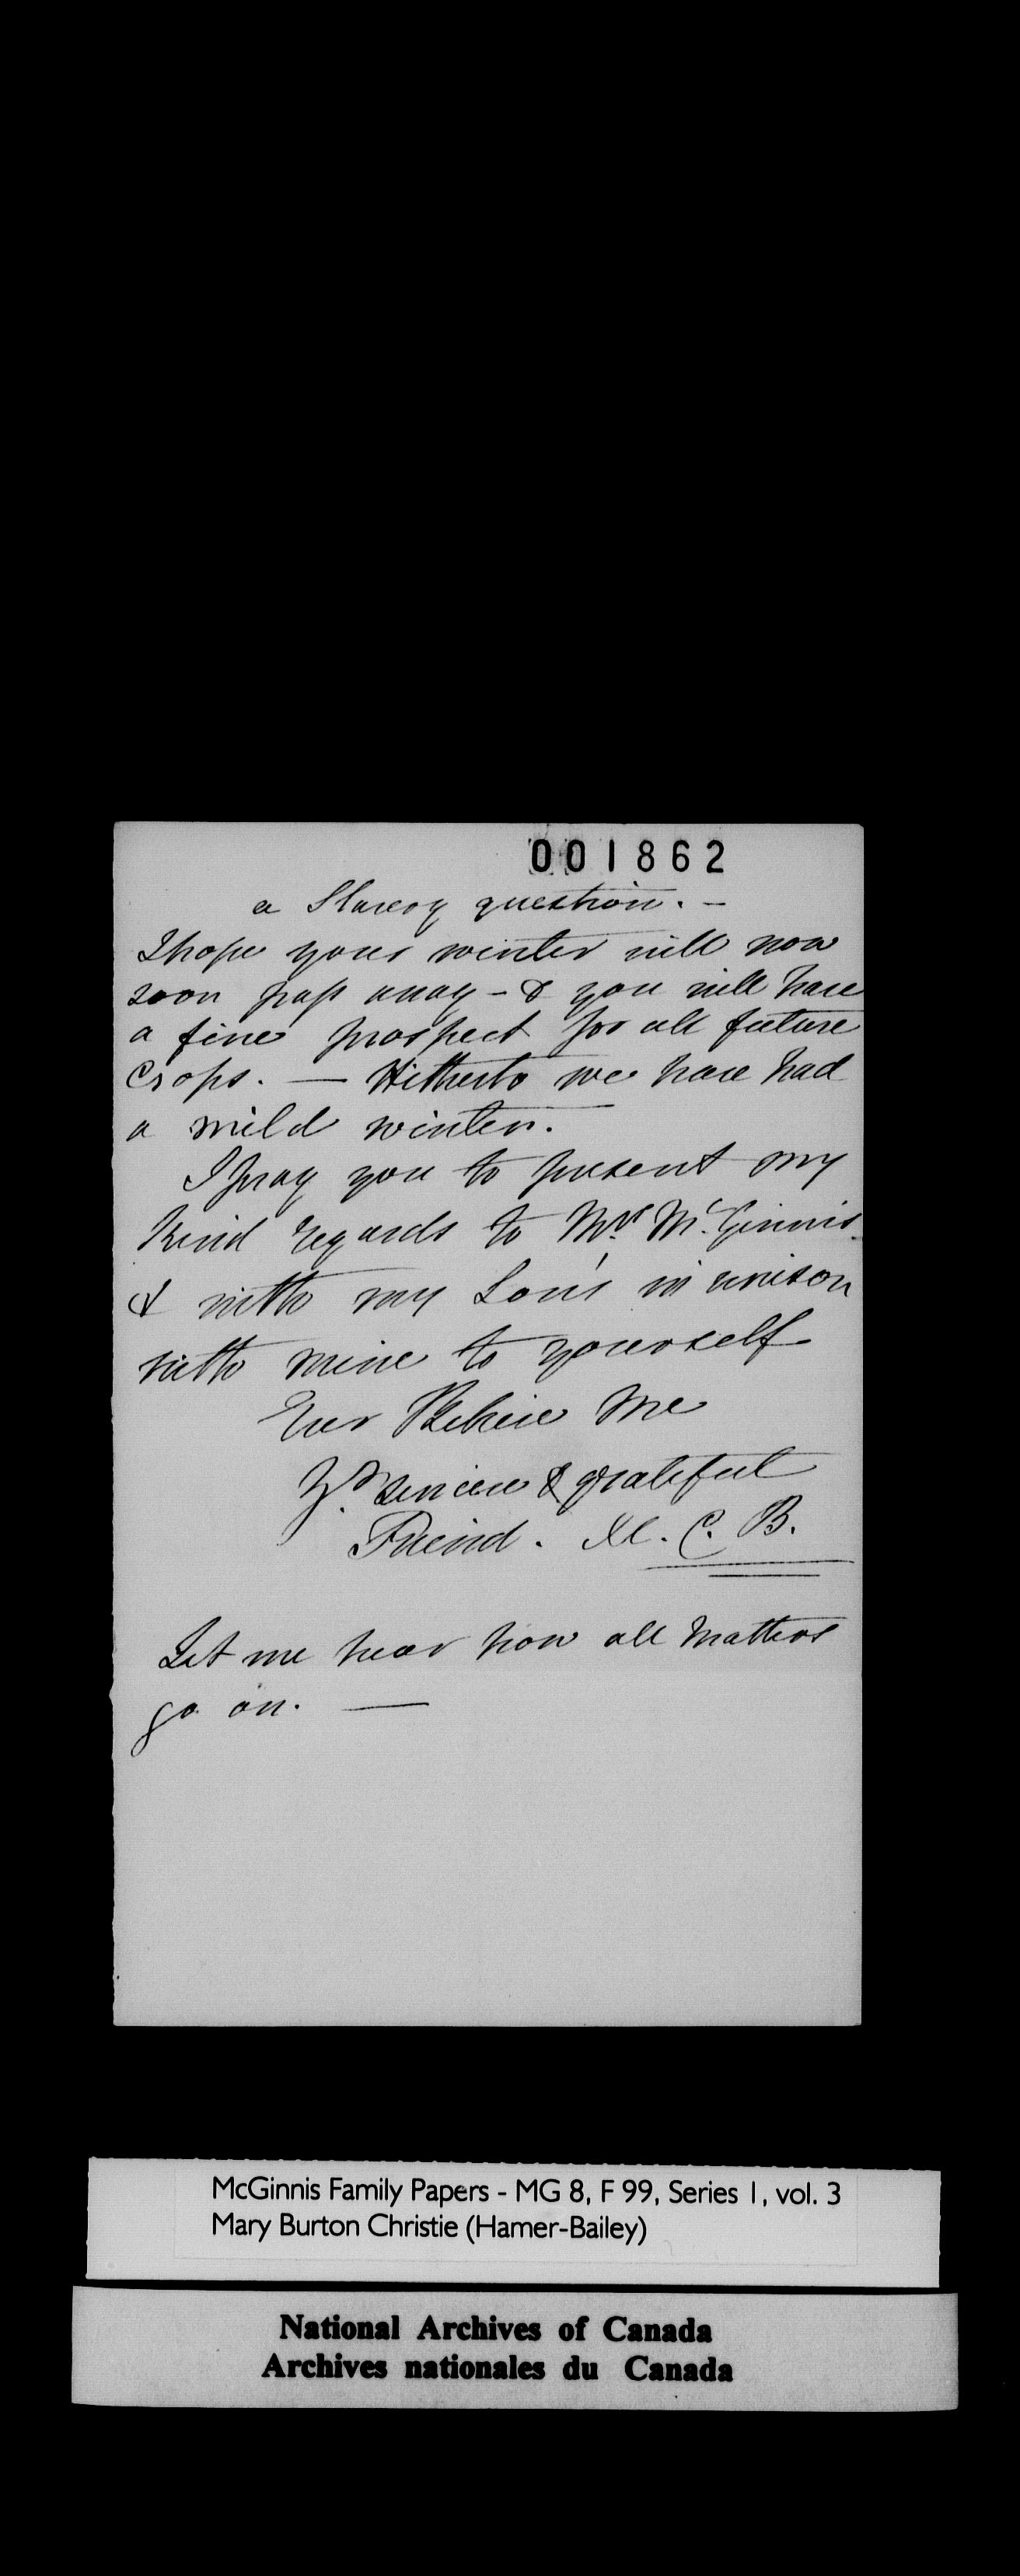 001862
a Slavery question. -
I hope your winter will now
soon pass away - & you will have
a fine prospect for all future
Crops. — Hitherto we have had
a mild winter.
I pray you to present my
Kind regards to Mrs. McGinnis
& with my Son's in unison
with mine to yourself
Ever Believe Me
Yr. sincere & grateful
Friend. M. C. B.
Let me hear how all matters
go on. —
McGinnis Family Papers - MG 8, F 99, Series 1, vol. 3
Mary Burton Christie (Hamer-Bailey)
National Archives of Canada
Archives nationales du Canada